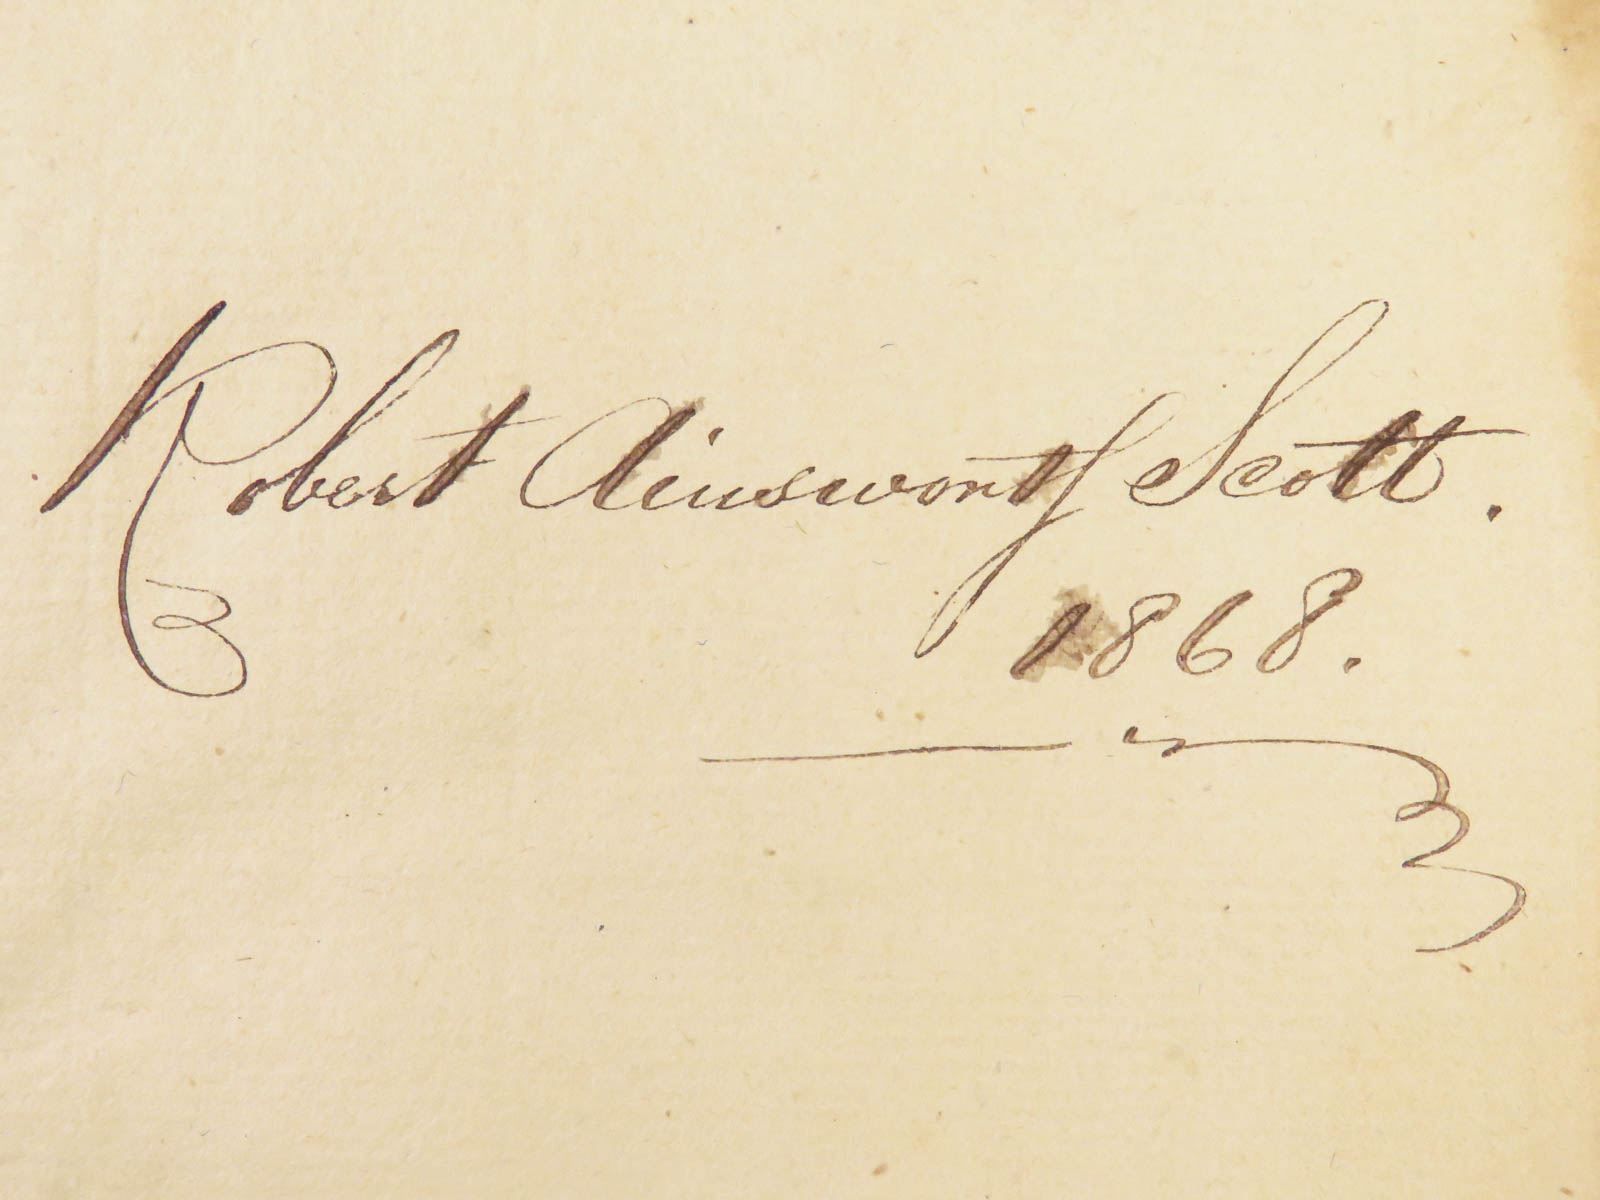 Robert Ainsworth Scott.
1868.